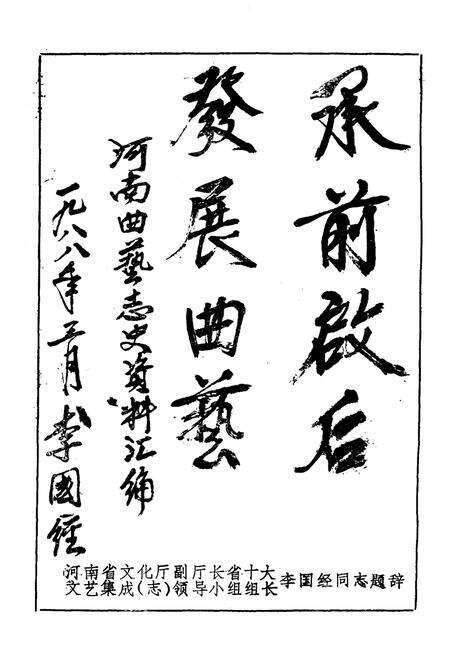 承前啟后
發展曲藝
河南曲藝志史資料汇编
一九八八年三月 李國經
河南省文化厅副厅长省十大
文艺集成(志)领导小组组长
李国经同志题辞